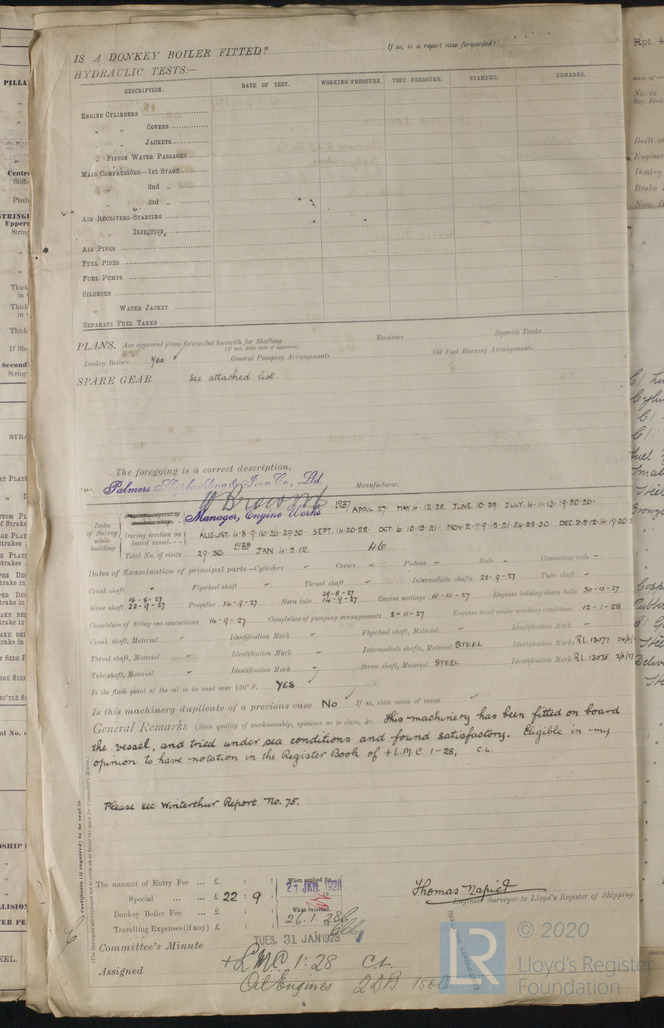 IS A DONKEY BOILER FITTED? If so, is a report now forwarded?
HYDRAULIC TESTS:—
DESCRIPTION. DATE OF TEST. WORKING PRESSURE. TEST PRESSURE. STAMPED. REMARKS.
ENGINE CYLINDERS
„ „ COVERS
„ „ JACKETS
„ PISTON WATER PASSAGES
MAIN COMPRESSORS—1ST STAGE
„ 2ND „
„ 3RD „
AIR RECEIVERS—STARTING
„ INJECTION
AIR PIPES
FUEL PIPES
FUEL PUMPS
SILENCER
„ WATER JACKET
SEPARATE FUEL TANKS
PLANS. Are approved plans forwarded herewith for Shafting Receivers Separate Tanks
(If not, state date of approval)
Donkey Boilers Yes General Pumping Arrangements Oil Fuel Burning Arrangements
SPARE GEAR See attached list
The foregoing is a correct description,
Palmers Shipbuilding & Iron Co., Ltd Manufacturer.
Manager, Engine Works
Dates of Survey while building
1927 APRIL 27. MAY 4-12-25. JUNE 10-29. JULY 4-11-13-19-20-26-
During erection on board vessel AUGUST 4-8-9-10-26-29-30 SEPT. 14-20-22 OCT 6-10-13-21 NOV-2-7-9-15-21-24-25-30 DEC 2-5-12-14-19-20
29-30. 1928 JAN 4-5-12
Total No. of visits 46
Dates of Examination of principal parts—Cylinders „ Covers „ Pistons „ Rods „ Connecting rods „
Crank shaft „ Flywheel shaft „ Thrust shaft „ Intermediate shafts 22-9-27 Tube shaft „
Screw shaft 16-8-27 22-9-27 Propeller 14-9-27 Stern tube 29-8-27 14-9-27 Engine seatings 10-10-27 Engines holding down bolts 30-12-27
Completion of fitting sea connections 14-9-27 Completion of pumping arrangements 2-11-27 Engines tried under working conditions 12-1-28
Crank shaft, Material „ Identification Mark „ Flywheel shaft, Material „ Identification Mark „
Thrust shaft, Material „ Identification Mark „ Intermediate shafts, Material STEEL Identification Marks RL 13077
Tube shaft, Material „ Identification Mark „ Screw shaft, Material STEEL Identification Mark RL 13075
Is the flash point of the oil to be used over 150° F. YES
Is this machinery duplicate of a previous case No If so, state name of vessel
General Remarks (State quality of workmanship, opinions as to class, &c. This machinery has been fitted on board
the vessel, and tried under sea conditions and found satisfactory. Eligible in my
opinion to have notation in the Register Book of +L.M.C. 1-28. C.L.
Please see Winterthur Report No. 75.
The amount of Entry Fee ... £ : :
Special ... ... £ 22 : 9 :
Donkey Boiler Fee ... £ : :
Travelling Expenses (if any) £ : :
When applied for,
27 JAN 1928
When received,
26.1.28
Thomas Napier
Engineer Surveyor to Lloyd's Register of Shipping.
Committee's Minute TUES. 31 JAN 1928
Assigned +LMC 1:28 CL
Oil Engines 2DB 150 lb
LR © 2020
Lloyd's Register
Foundation